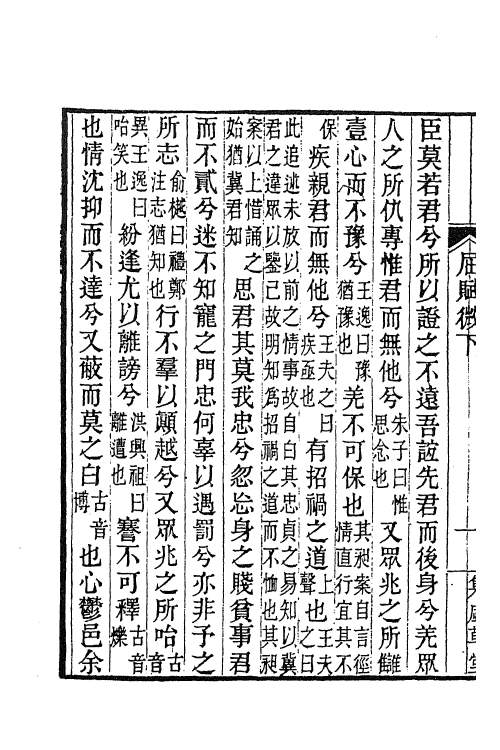 屈賦微下
臣莫若君兮所以證之不遠吾誼先君而後身兮羌眾
人之所仇專惟君而無他兮朱子曰惟思念也又眾兆之所讎
壹心而不豫兮王逸曰豫猶豫也羌不可保也其昶案自言徑情直行宜其不
保疾親君而無他兮王夫之曰疾亟也有招禍之道也王夫之曰上聲
此追述未放以前之情事故自白其忠貞之易知以冀
君之違眾以鑒已故明知為招禍之道而不恤也其昶
案以上惜誦之始猶冀君知思君其莫我忠兮忽忘身之賤貧事君
而不貳兮迷不知寵之門忠何辜以遇罰兮亦非予之
所志俞樾曰禮鄭注志猶知也行不羣以顛越兮又眾兆之所咍古音
異王逸曰咍笑也紛逢尤以離謗兮洪興祖曰離遭也謇不可釋古音爍
也情沈抑而不達兮又蔽而莫之白古音博也心鬱邑余